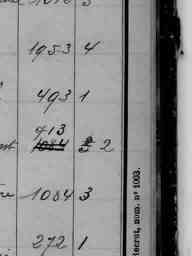 1953 4
493 1
913
1084 2
1084 3
272 1
Recrut, mom. nº 1003.